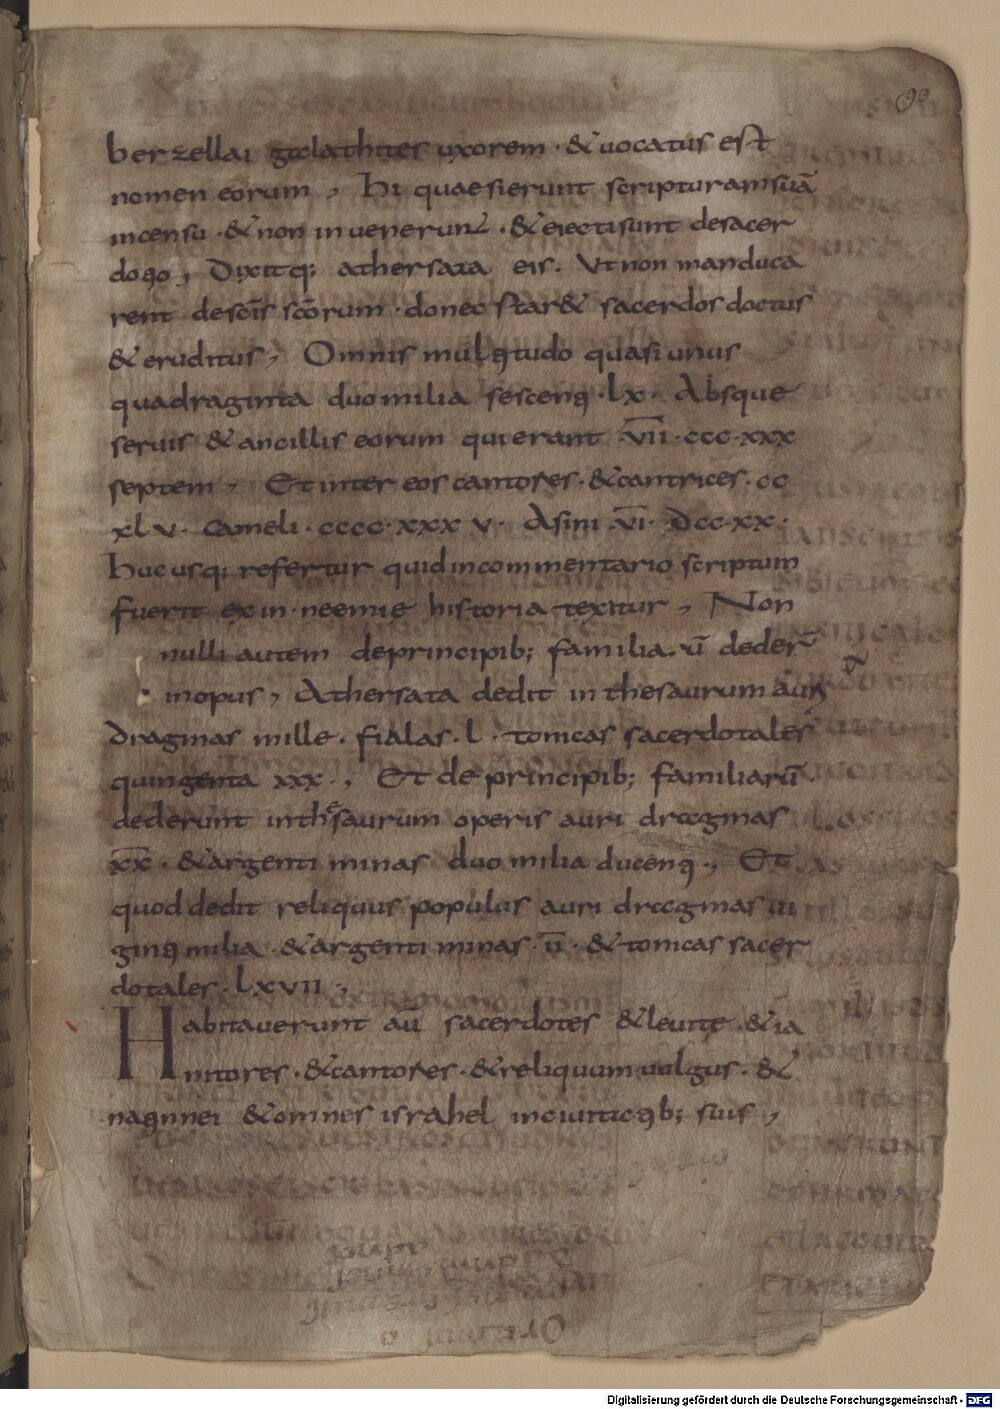 99
berzellai galathites uxorem · & vocatus est
nomen eorum , hi quaesierunt scripturam suā
incensu · & non invenerunt · & eiecti sunt de sacer
dotio , Dixitq; athersata eis . Ut non manduca
rent de scīs scōrum · donec star& sacerdos doctus
& eruditus , Omnis multitudo quasi unus
quadraginta duo milia sescenti · lx · Absque
servis & ancillis eorum qui erant v̅i̅i̅ · ccc · xxx
septem , Et inter eos cantores · & cantrices · cc
xl v · cameli · cccc · xxx v · Asini v̅i̅ · Dcc · xx ·
hucusq; refertur quid in commentario scriptum
fuerit exin · neemię historia texitur , Non
nulli autem de principib; familiarū deder̄
in opus , Athersata dedit in thesaurum auri
dragmas mille . fialas · l · tonicas sacerdotales
quingenta xxx · , Et de principib; familiarū
dederunt in thesaurum operis auri dragmas
x̅x̅ · & argenti minas duo milia ducenti · , Et
quod dedit reliquus populus auri dragmas vi
ginti milia · & argenti minas · i̅i̅ · & tonicas sacer
dotales · lxvii ,
Habitaverunt aū sacerdotes & levitę · & ia
nitores · & cantores · & reliquum volgus · &
natinnei & omnes israhel in civitatib; suis ,
Digitalisierung gefördert durch die Deutsche Forschungsgemeinschaft - DFG